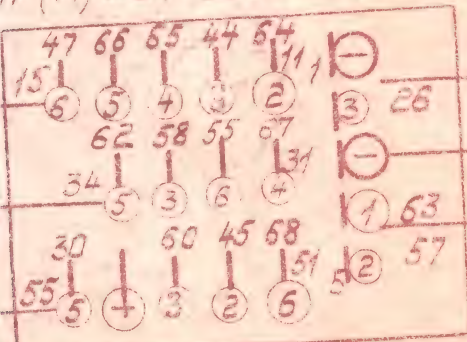 47 66 65 44 64
15 11 1 −
6 5 4 3 2 3 26
62 58 55 67 −
34 31
5 3 6 4 1 63
30 60 45 68 57
55 51 5 2
5 + 3 2 6